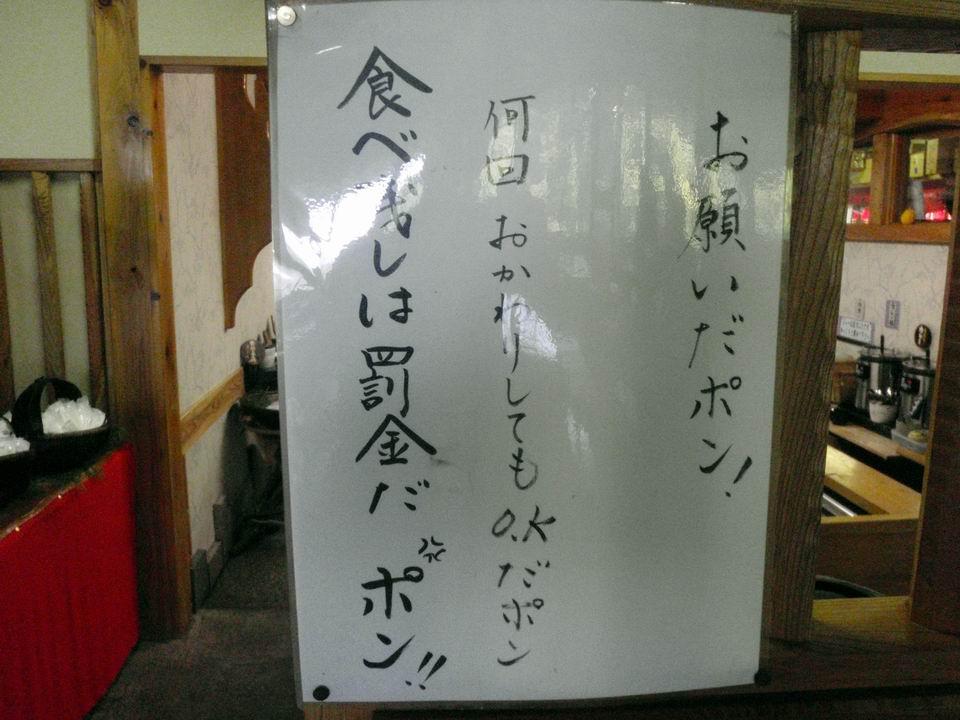 お願いだポン!
何回おかわりしても O.KだポンN
食べ残しは罰金だポン!!